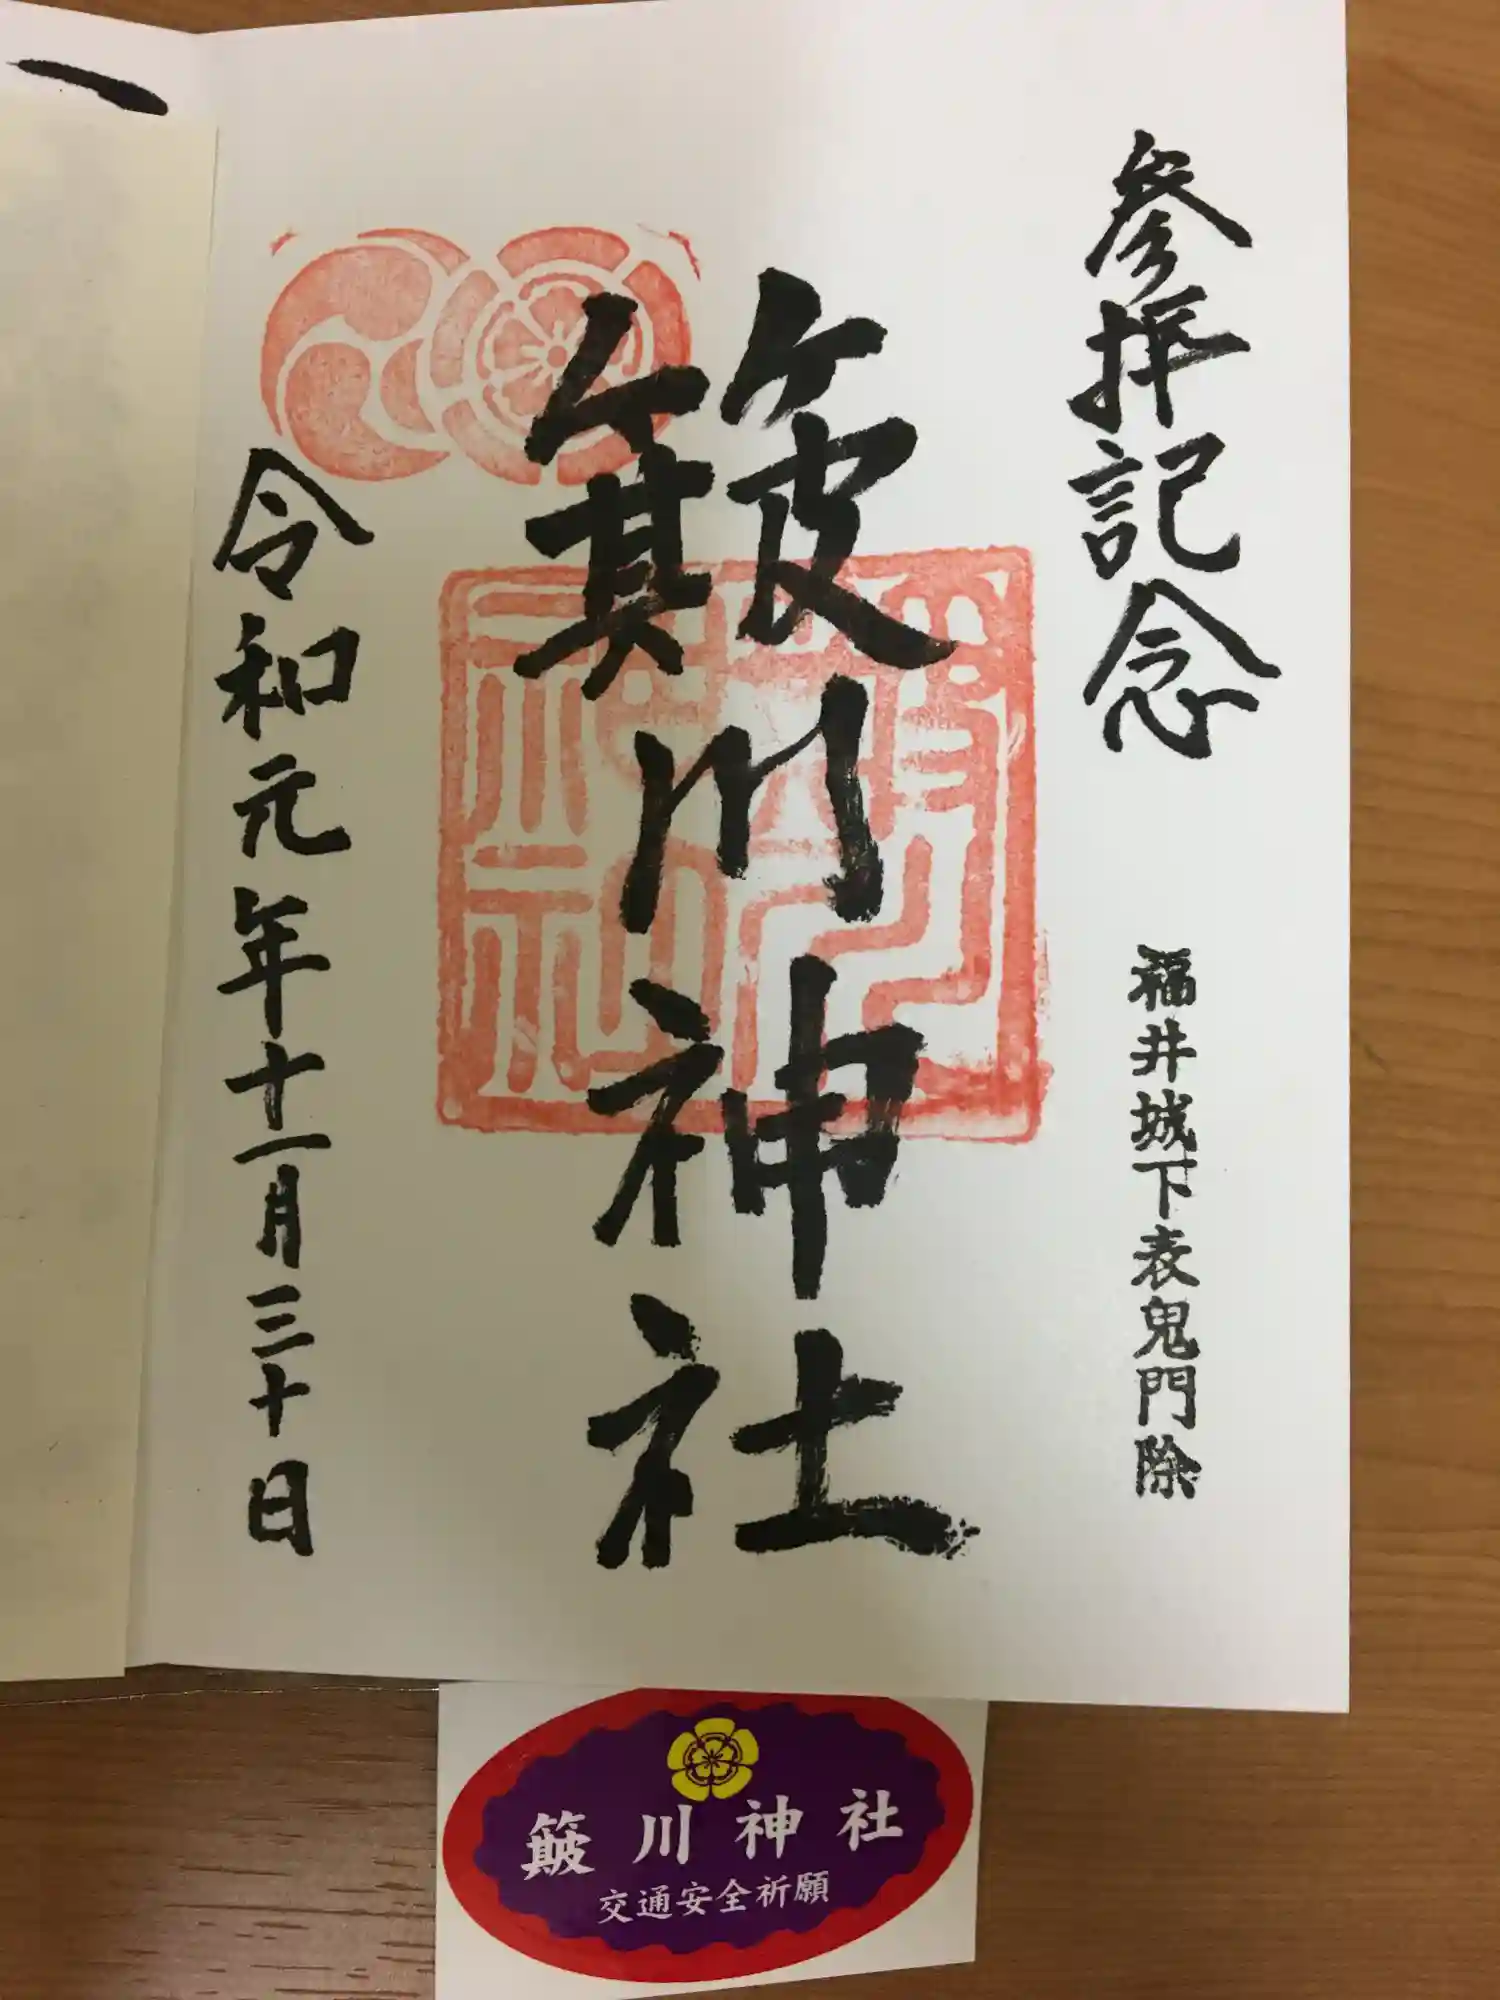 参拝記念
福井城下表鬼門除
簸川神社
令和元年十一月三十日
一
簸川神社
交通安全祈願